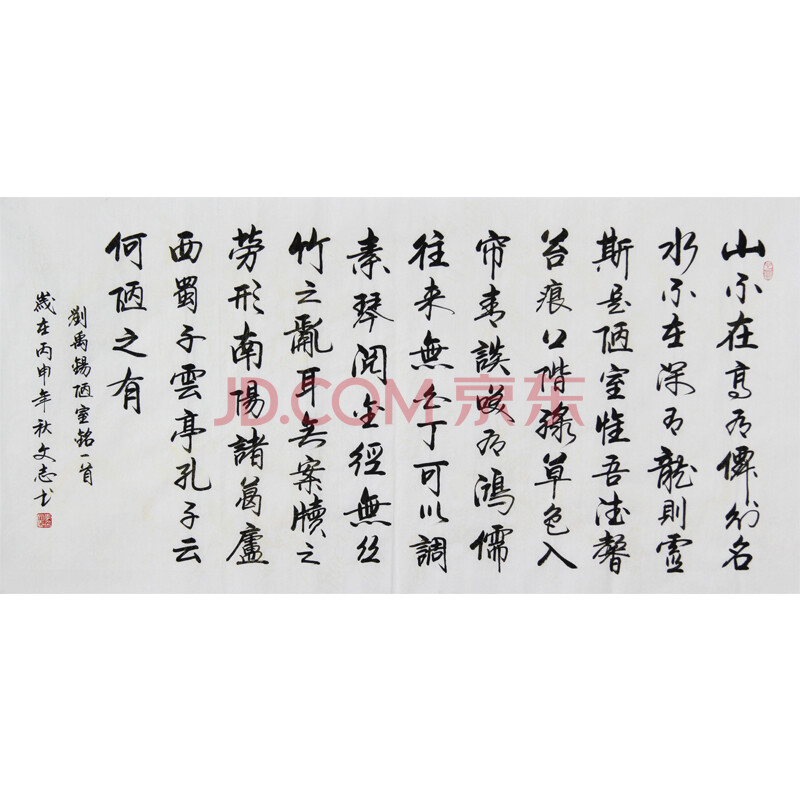 山不在高有僊則名
水不在深有龍則靈
斯是陋室惟吾德馨
苔痕上階綠草色入
帘青談咲有鴻儒
往来無白丁可以調
素琴閱金經無丝
竹之亂耳无案牘之
劳形南陽諸葛廬
西蜀子雲亭孔子云
何陋之有
劉禹錫陋室銘一首
歲在丙申年秋文志书
JD.COM 京东